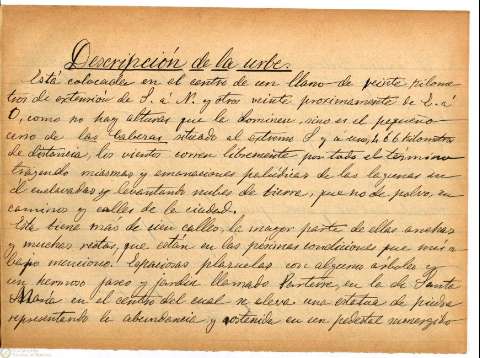 Descripción de la urbe.
Está colocada en el centro de un llano de veinte kilome
tros de extensión de S. á N. y otros veinte proximamente de E. á
O, como no hay alturas que la dominen, sino es el pequeño
uno de las Cabezas situado al extremo S. y a uno, 4 6 6 kilometros
de distancia, los vientos corren libremente por todo el termino
trayendo miasmas y emanaciones palúdicas de las lagunas en
el enclavadas y levantando nubes de tierra, que no de polvo, en
caminos y calles de la ciudad.
Esta tiene más de cien calles, la mayor parte de ellas anchas
y muchas rectas, que estan en las pésimas condiciones que más
bajo menciono. Espaciosas plazuelas con algunos árboles y
un hermoso paseo y jardin llamado Parterre, en la de Santa
María en el centro del cual se eleva una estatua de piedra
representando la abundancia y sostenida en un pedestal sumergido